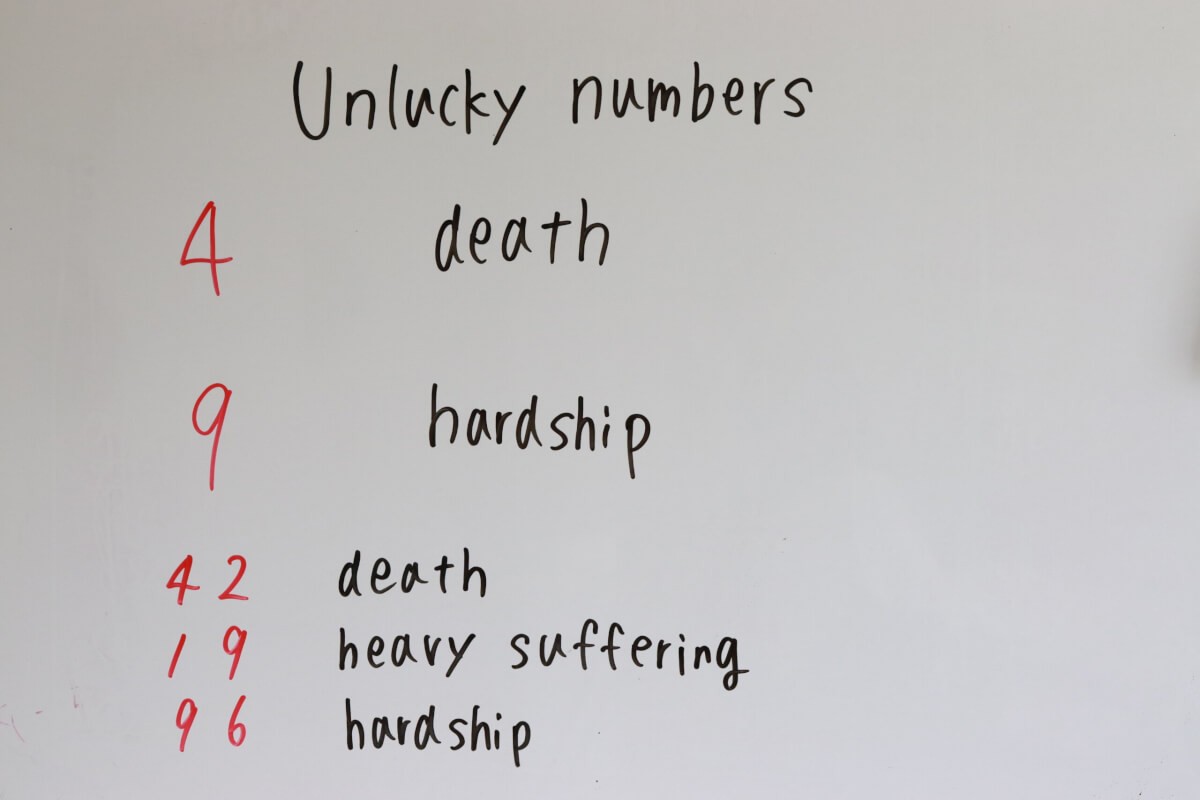 Unlucky numbers
4 death
9 hardship
42 death
19 heavy suffering
96 hardship